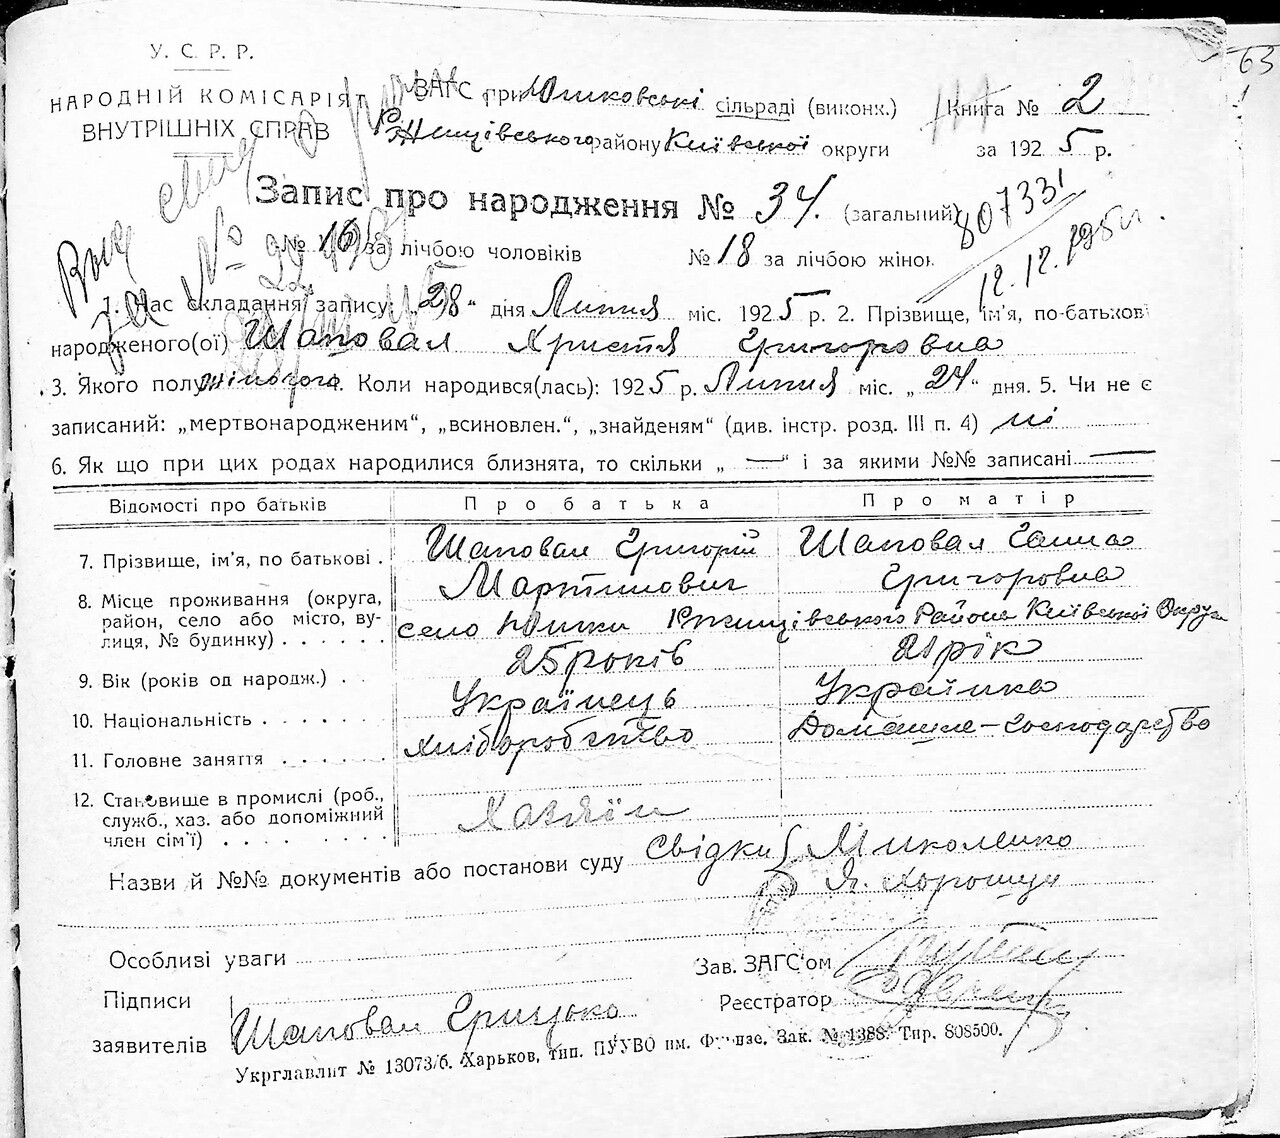 63
У. С. Р. Р.
НАРОДНІЙ КОМІСАРІЯТ
ВНУТРІШНІХ СПРАВ
ЗАГС при Юшковські сільраді (виконк.)
Ржищівського району Київської округи
Книга № 2
за 1925 р.
Запис про народження № 34. (загальний)
№ 16 за лічбою чоловіків № 18 за лічбою жінок
807331
12.12.195
Выд свид
за №
1. Час складання запису: „28“ дня Липня міс. 1925 р. 2. Прізвище, ім'я, по-батькові
народженого(ої) Шаповал Христя Григоровна
3. Якого полу жіночого 4. Коли народився(лась): 1925 р. Липня міс. „24“ дня. 5. Чи не є
записаний: „мертвонародженим“, „всиновлен.“, „знайденям“ (див. інстр. розд. III п. 4) ні
6. Як що при цих родах народилися близнята, то скільки „ — “ і за якими №№ записані —
Відомості про батьків Про батька Про матір
7. Прізвище, ім'я, по батькові . Шаповал Григорій Мартинович Шаповал Ганна Григоровна
8. Місце проживання (округа,
район, село або місто, ву-
лиця, № будинку) . . . . . . село Юшки Ржищівського Района Київської Округи
9. Вік (років од народж.) . . 25 років 21 рік
10. Національність . . . . . . Українець Українка
11. Головне заняття . . . . . . хліборобство Домашнє-господарство
12. Становище в промислі (роб.,
служб., хаз. або допоміжний
член сім'ї) . . . . . . . . . Хазяїн
Назви й №№ документів або постанови суду Свідки { Миколенко
Я. Хорошун
Особливі уваги
Зав. ЗАГС'ом
Підписи
заявителів Шаповал Грицько
Реєстратор
Укрглавлит № 13073/б. Харьков, тип. ПУУВО им. Фрунзе, Зак. № 1388. Тир. 808500.